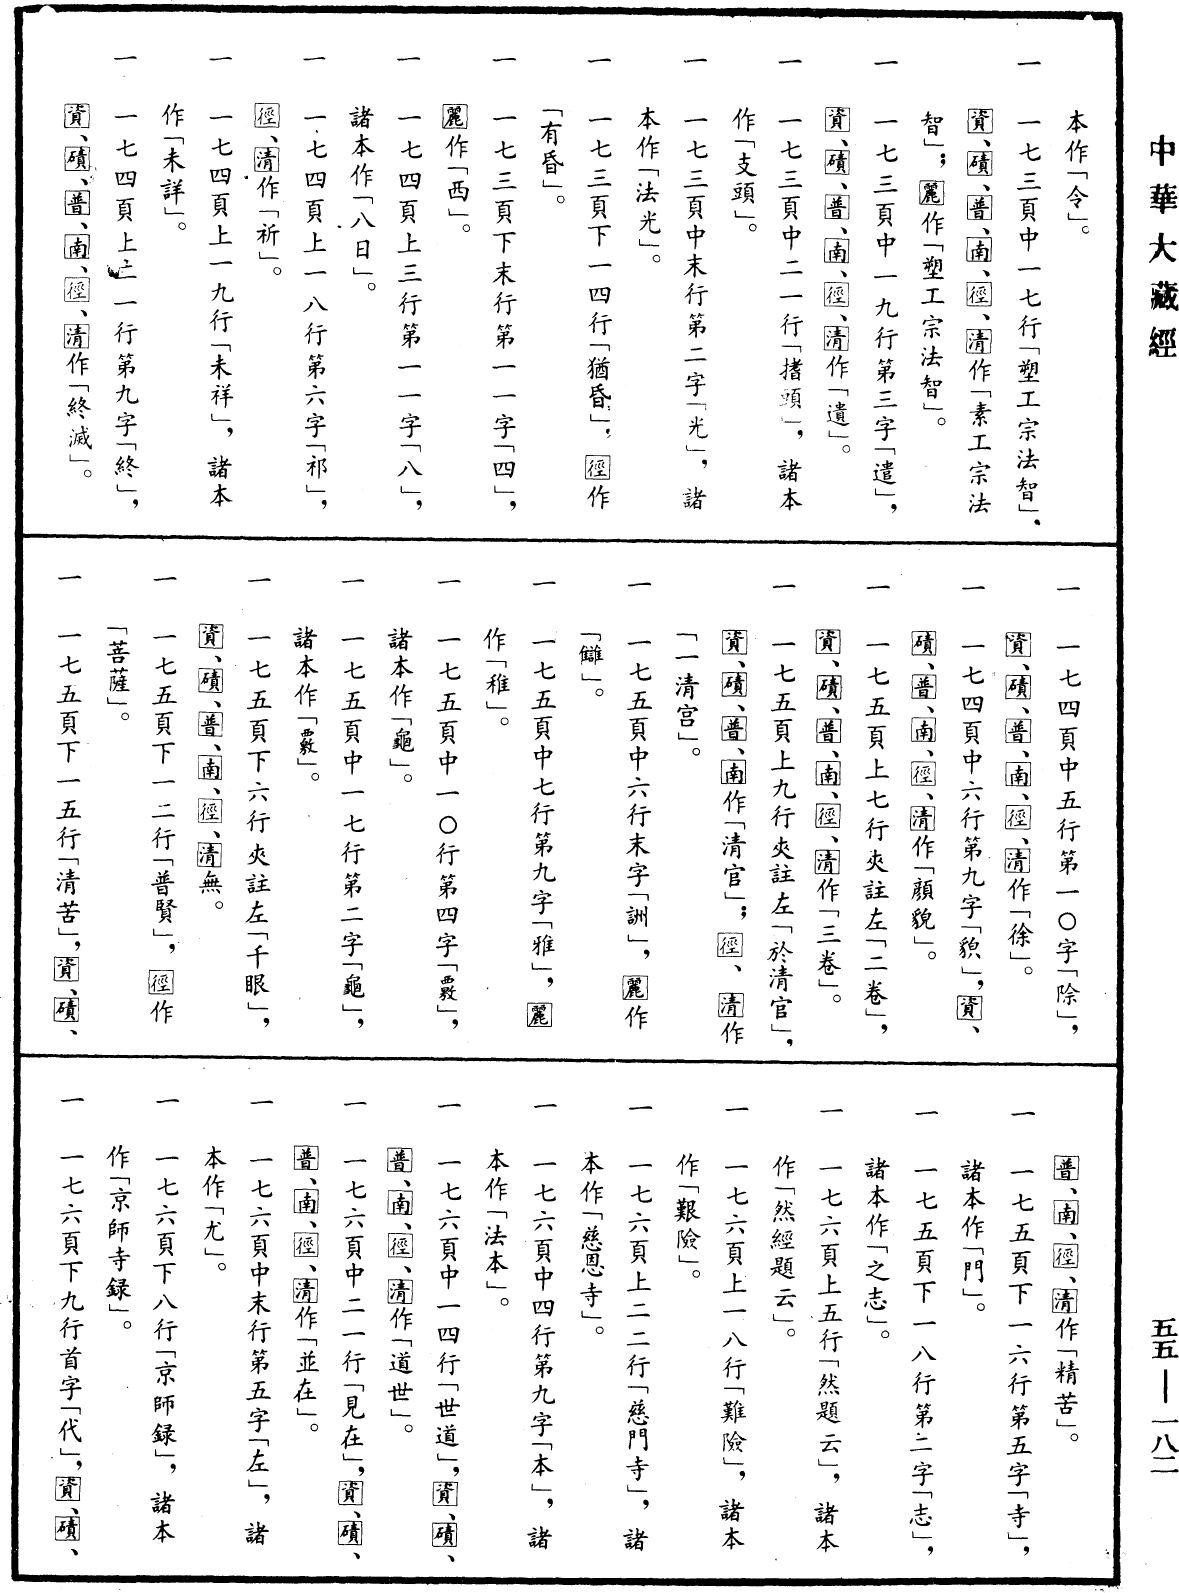 中華大藏經
五五—一八二
本作「令」。
一　一七三頁中一七行「塑工宗法智」、
資、磧、普、南、徑、清作「素工宗法
智」；麗作「塑工宗法智」。
一　一七三頁中一九行第三字「遣」，
資、磧、普、南、徑、清作「遺」。
一　一七三頁中二一行「揸頭」，諸本
作「支頭」。
一　一七三頁中末行第二字「光」，諸
本作「法光」。
一　一七三頁下一四行「猶昏」，徑作
「有昏」。
一　一七三頁下末行第一一字「四」，
麗作「西」。
一　一七四頁上三行第一一字「八」，
諸本作「八日」。
一　一七四頁上一八行第六字「祁」，
徑、清作「祈」。
一　一七四頁上一九行「未祥」，諸本
作「未詳」。
一　一七四頁上二一行第九字「終」，
資、磧、普、南、徑、清作「終滅」。
一　一七四頁中五行第一〇字「除」，
資、磧、普、南、徑、清作「徐」。
一　一七四頁中六行第九字「貌」，資、
磧、普、南、徑、清作「顔貌」。
一　一七五頁上七行夾註左「二卷」，
資、磧、普、南、徑、清作「三卷」。
一　一七五頁上九行夾註左「於清官」，
資、磧、普、南作「清官」；徑、清作
「一清宫」。
一　一七五頁中六行末字「詶」，麗作
「讎」。
一　一七五頁中七行第九字「雅」，麗
作「稚」。
一　一七五頁中一〇行第四字「覈」，
諸本作「龜」。
一　一七五頁中一七行第二字「龜」，
諸本作「覈」。
一　一七五頁下六行夾註左「千眼」，
資、磧、普、南、徑、清無。
一　一七五頁下一二行「普賢」，徑作
「菩薩」。
一　一七五頁下一五行「清苦」，資、磧、
普、南、徑、清作「精苦」。
一　一七五頁下一六行第五字「寺」，
諸本作「門」。
一　一七五頁下一八行第二字「志」，
諸本作「之志」。
一　一七六頁上五行「然題云」，諸本
作「然經題云」。
一　一七六頁上一八行「難險」，諸本
作「艱險」。
一　一七六頁上二二行「慈門寺」，諸
本作「慈恩寺」。
一　一七六頁中四行第九字「本」，諸
本作「法本」。
一　一七六頁中一四行「世道」，資、磧、
普、南、徑、清作「道世」。
一　一七六頁中二一行「見在」，資、磧、
普、南、徑、清作「並在」。
一　一七六頁中末行第五字「左」，諸
本作「尤」。
一　一七六頁下八行「京師録」，諸本
作「京師寺録」。
一　一七六頁下九行首字「代」，資、磧、